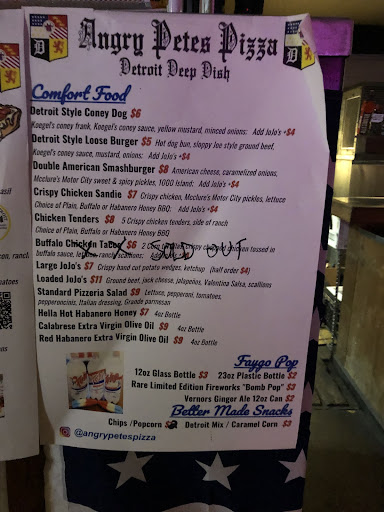 Angry Petes Pizza
Detroit Deep Dish
Comfort Food
Detroit Style Coney Dog $6
Koegel's coney frank, Koegel's coney sauce, yellow mustard, minced onions: Add JoJo's +$4
Detroit Style Loose Burger $5 Hot dog bun, sloppy joe style ground beef,
Koegel's coney sauce, mustard, onions: Add JoJo's +$4
Double American Smashburger $8 American cheese, caramelized onions,
Mcclure's Motor City sweet & spicy pickles, 1000 Island: Add JoJo's +$4
Crispy Chicken Sandie $7 Crispy chicken, Mcclure's Motor City pickles, lettuce
Choice of Plain, Buffalo or Habanero Honey BBQ: Add JoJo's +$4
Chicken Tenders $8 5 Crispy chicken tenders, side of ranch
Choice of Plain, Buffalo or Habanero Honey BBQ
Buffalo Chicken Tacos $6 2 crispy chicken tossed in
buffalo sauce, lettuce, ranch, scallions:
SOLD OUT
Large JoJo's $7 Crispy hand cut potato wedges, ketchup (half order $4)
Loaded JoJo's $11 Ground beef, jack cheese, jalapeños, Valentina Salsa, scallions
Standard Pizzeria Salad $9 Lettuce, pepperoni, tomatoes,
pepperoncinis, Italian dressing, Grande parmesan
Hella Hot Habanero Honey $7 4oz Bottle
Calabrese Extra Virgin Olive Oil $9 4oz Bottle
Red Habanero Extra Virgin Olive Oil $9 4oz Bottle
Faygo Pop
12oz Glass Bottle $3 23oz Plastic Bottle $2
Rare Limited Edition Fireworks "Bomb Pop" $3
Vernors Ginger Ale 12oz Can $2
Better Made Snacks
Chips /Popcorn Detroit Mix / Caramel Corn $3
@angrypetespizza